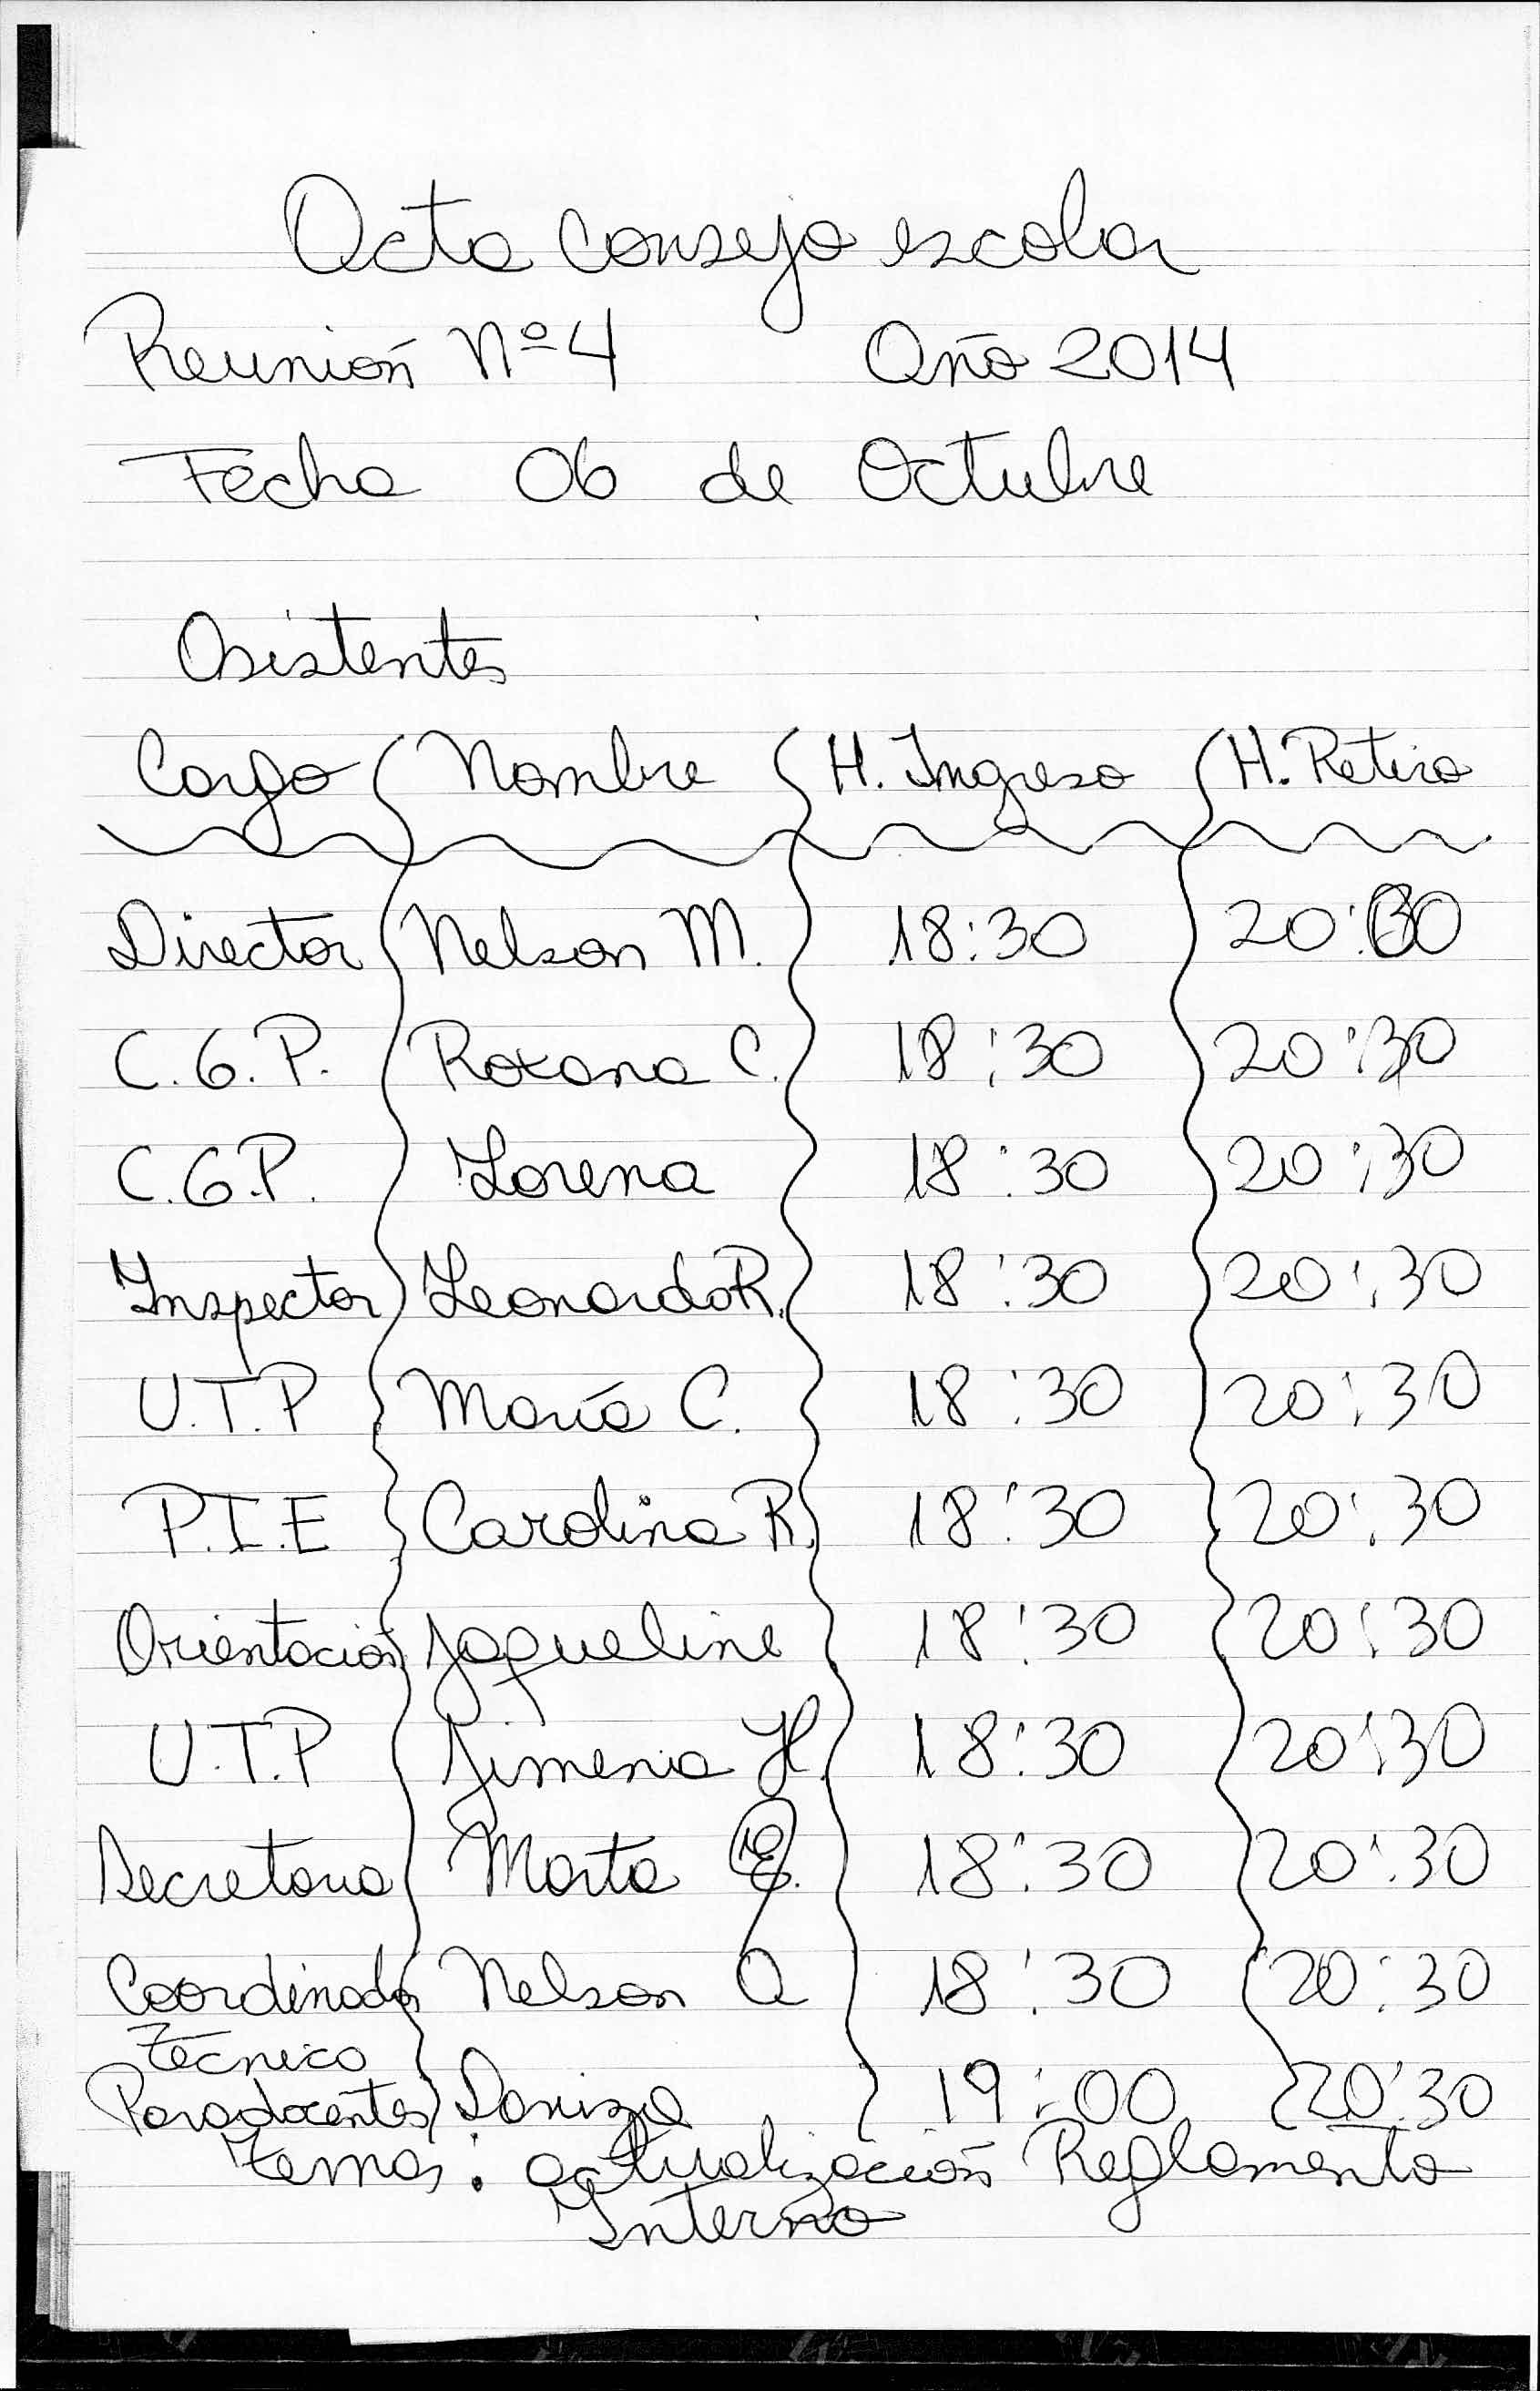 Acta Consejo escolar
Reunión Nº 4 Año 2014
Fecha 06 de Octubre
Asistentes
Cargo Nombre H. Ingreso H. Retiro
Director Nelson M. 18:30 20:30
C.G.P. Roxana C. 18:30 20:30
C.G.P. Lorena 18:30 20:30
Inspector Leonardo R. 18:30 20:30
U.T.P María C. 18:30 20:30
P.I.E Carolina R. 18:30 20:30
Orientación Jaqueline 18:30 20:30
U.T.P Jimena H. 18:30 20:30
Secretaria Marta 18:30 20:30
Coordinador Nelson O 18:30 20:30
Técnico
Paradocentes 19:00 20:30
Temas: actualización Reglamento
Interno